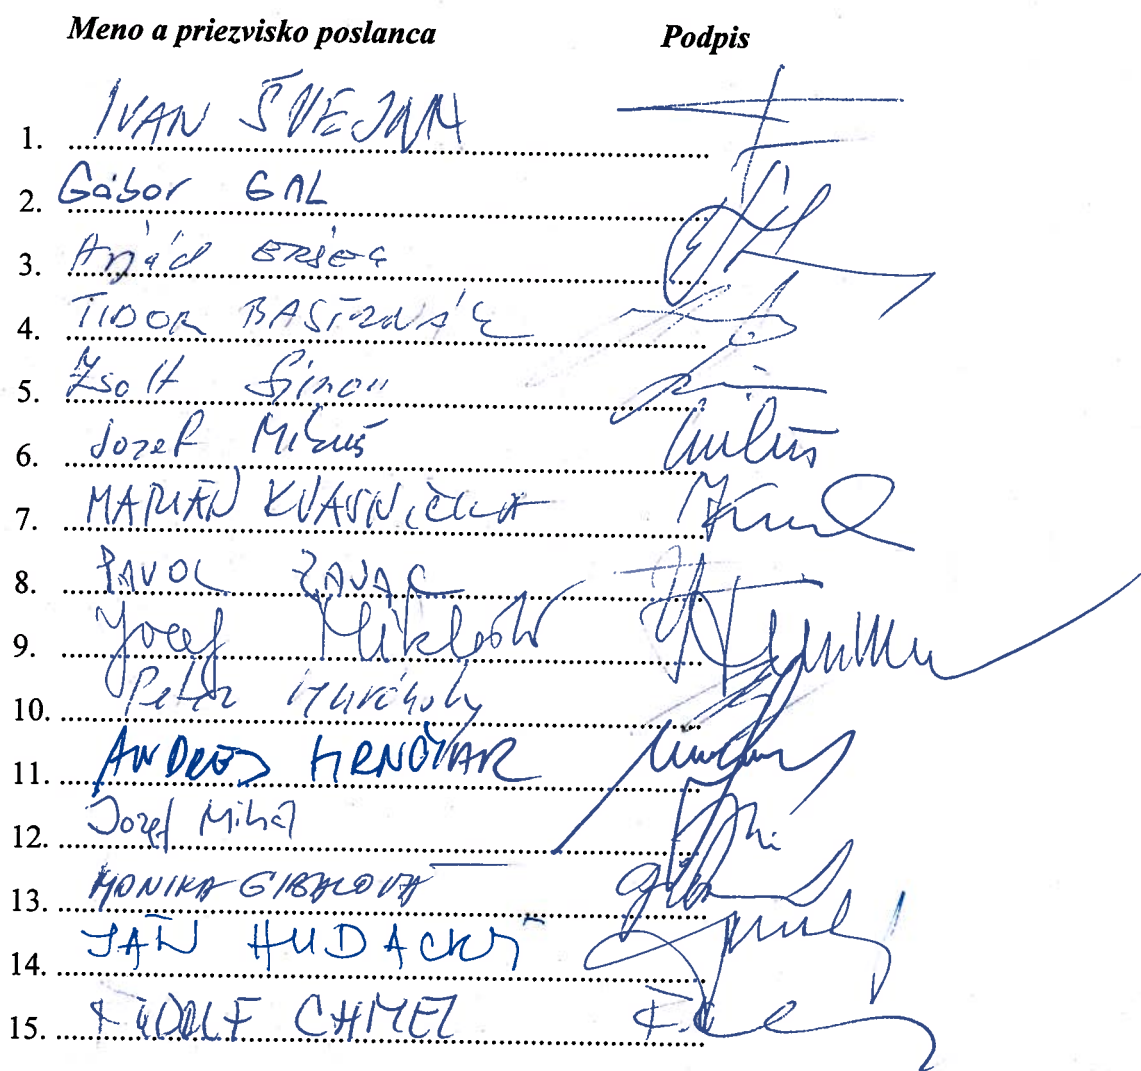 Meno a priezvisko poslanca Podpis
1. IVAN ŠVEJNA
2. Gábor GÁL
3. Árpád ÉRSEK
4. TIBOR BASTRNÁK
5. Zsolt Simon
6. Jozef Mikuš
7. MARIÁN KVASNIČKA
8. PAVOL ZAJAC
9. Jozef Mikloško
10. Peter
11. ANDREJ HRNČIAR
12. Jozef Mihál
13. MONIKA GIBALOVÁ
14. JÁN HUDACKÝ
15. RUDOLF CHMEL